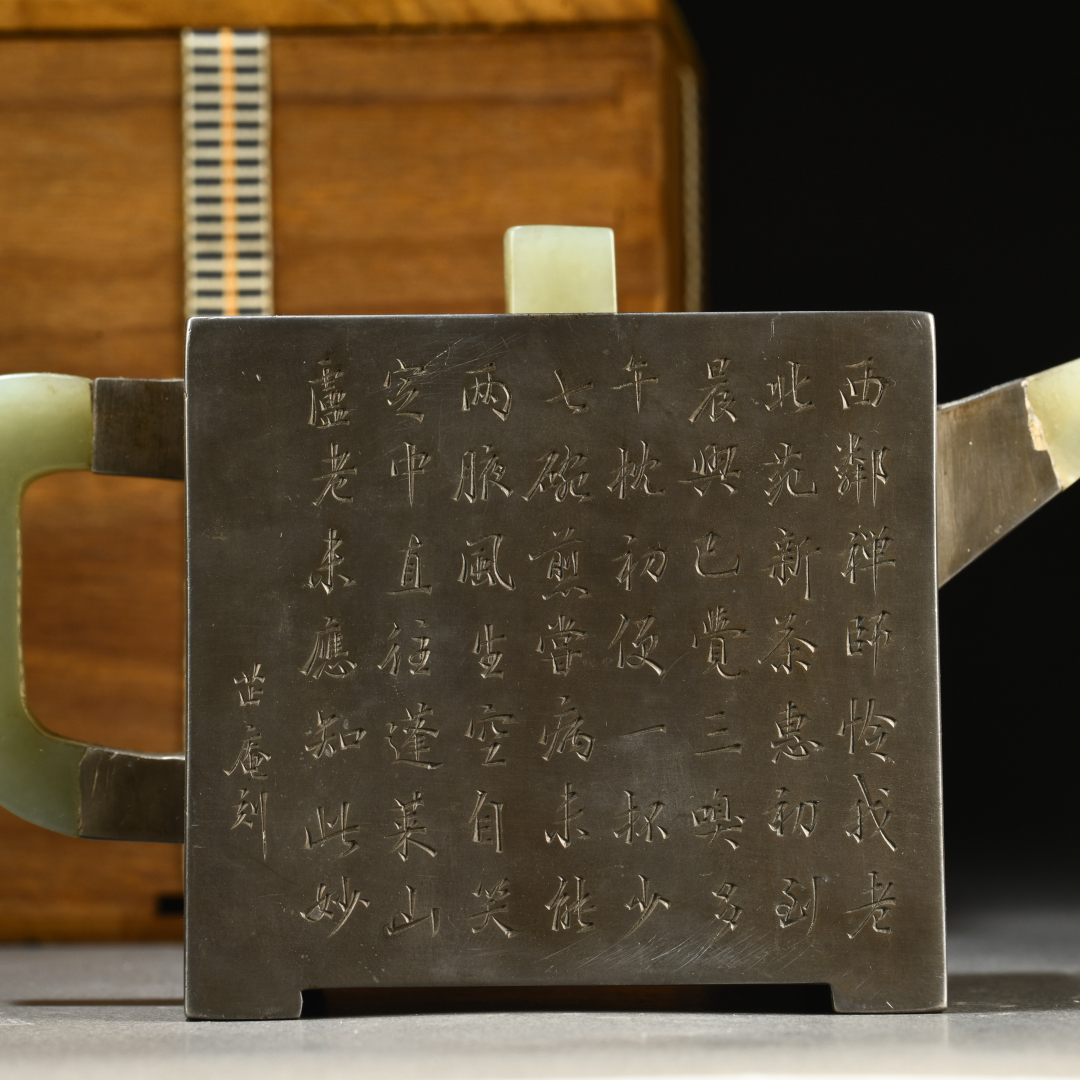 西鄰禪師怜我老
北苑新茶惠初到
晨興已覺三嗅多
午枕初便一杯少
七碗煎嘗病未能
两腋風生空自笑
定中直往蓬萊山
盧老未應知此妙
芷庵刻